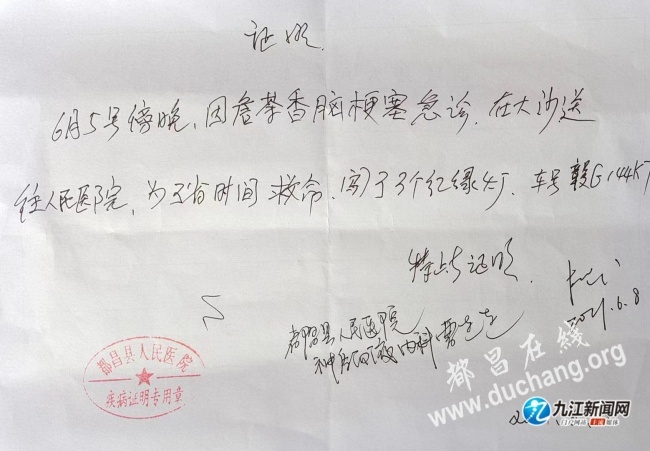 证明
6月5号傍晚,因詹茶香脑梗塞急诊,在大沙送
往人民医院,为了省时间救命,闯了3个红绿灯,车号赣G144K
特此证明
都昌县人民医院
神经内科
2021.6.8
都昌县人民医院
疾病证明专用章
都昌在线
www.duchang.org
九江新闻网
门户网站 主流媒体